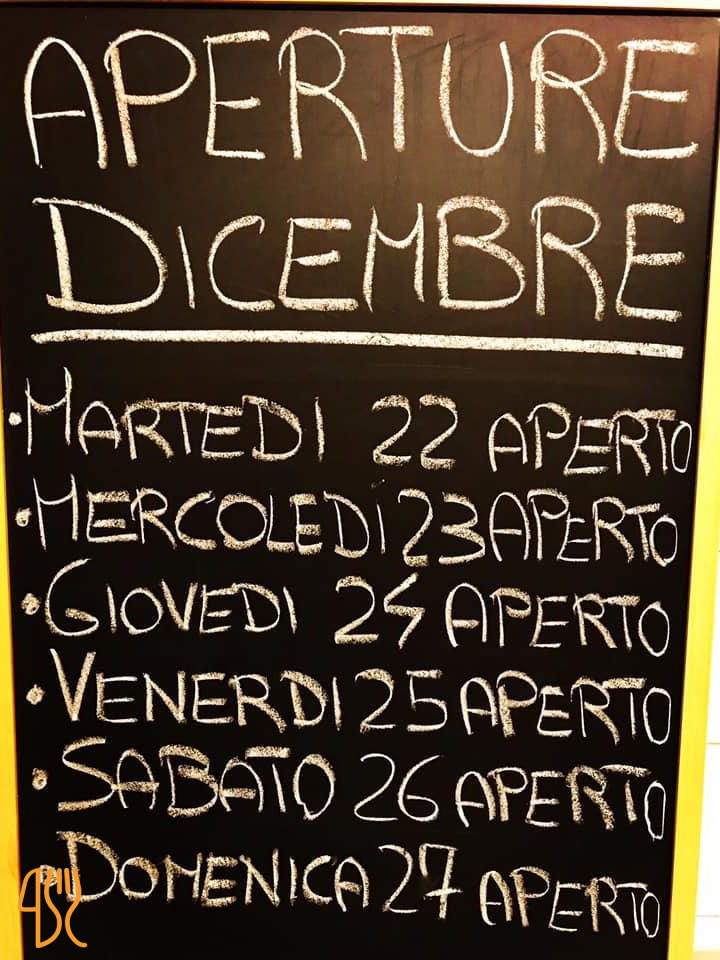 APERTURE
DICEMBRE
• MARTEDI 22 APERTO
• MERCOLEDI 23 APERTO
• GIOVEDI 24 APERTO
• VENERDI 25 APERTO
• SABATO 26 APERTO
• DOMENICA 27 APERTO